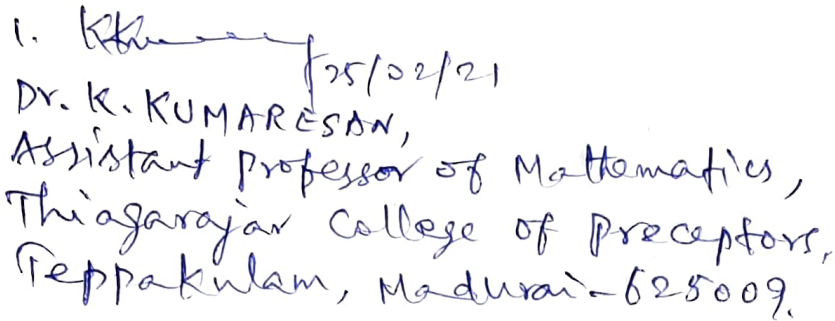 1.
25/02/21
Dr. K. KUMARESAN,
Assistant Professor of Mathematics,
Thiagarajar College of Preceptors,
Teppakulam, Madurai-625009.